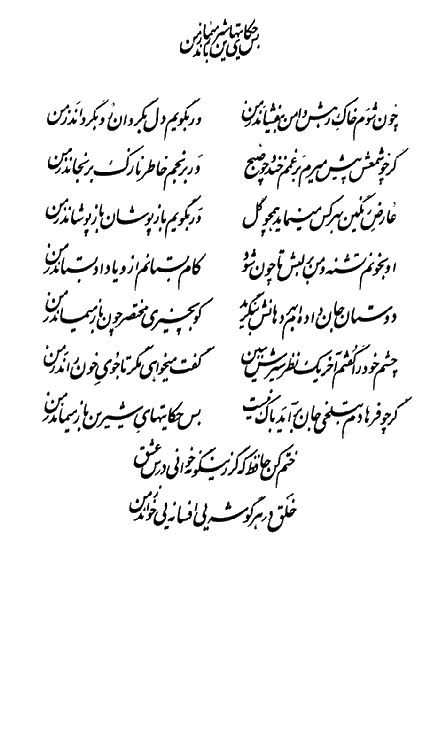 بس حکایتهای شیرین باز میماند ز من
چون شوم خاک رهش دامن بیفشاند ز من ور بگویم دل بگردان رو بگرداند ز من
گر چو شمعش پیش میرم بر غمم خندد چو صبح ور برنجم خاطر نازک برنجاند ز من
عارض رنگین بهر کس مینماید همچو گل ور بگویم باز پوشان باز پوشاند ز من
او بخونم تشنه و من بر لبش تا چون شود کام بستانم ازو یا داد بستاند ز من
دوستان جان داده ام بهر دهانش بنگرید کو بچیزی مختصر چون باز میماند ز من
چشم خود را گفتم آخر یک نظر سیرش ببین گفت میخواهی مگر تا جوی خون راند ز من
گر چو فرهادم بتلخی جان برآید باک نیست بس حکایتهای شیرین باز میماند ز من
ختم کن حافظ که گر زینگونه خوانی درس عشق
خلق در هر گوشه یی افسانه یی خواند ز من